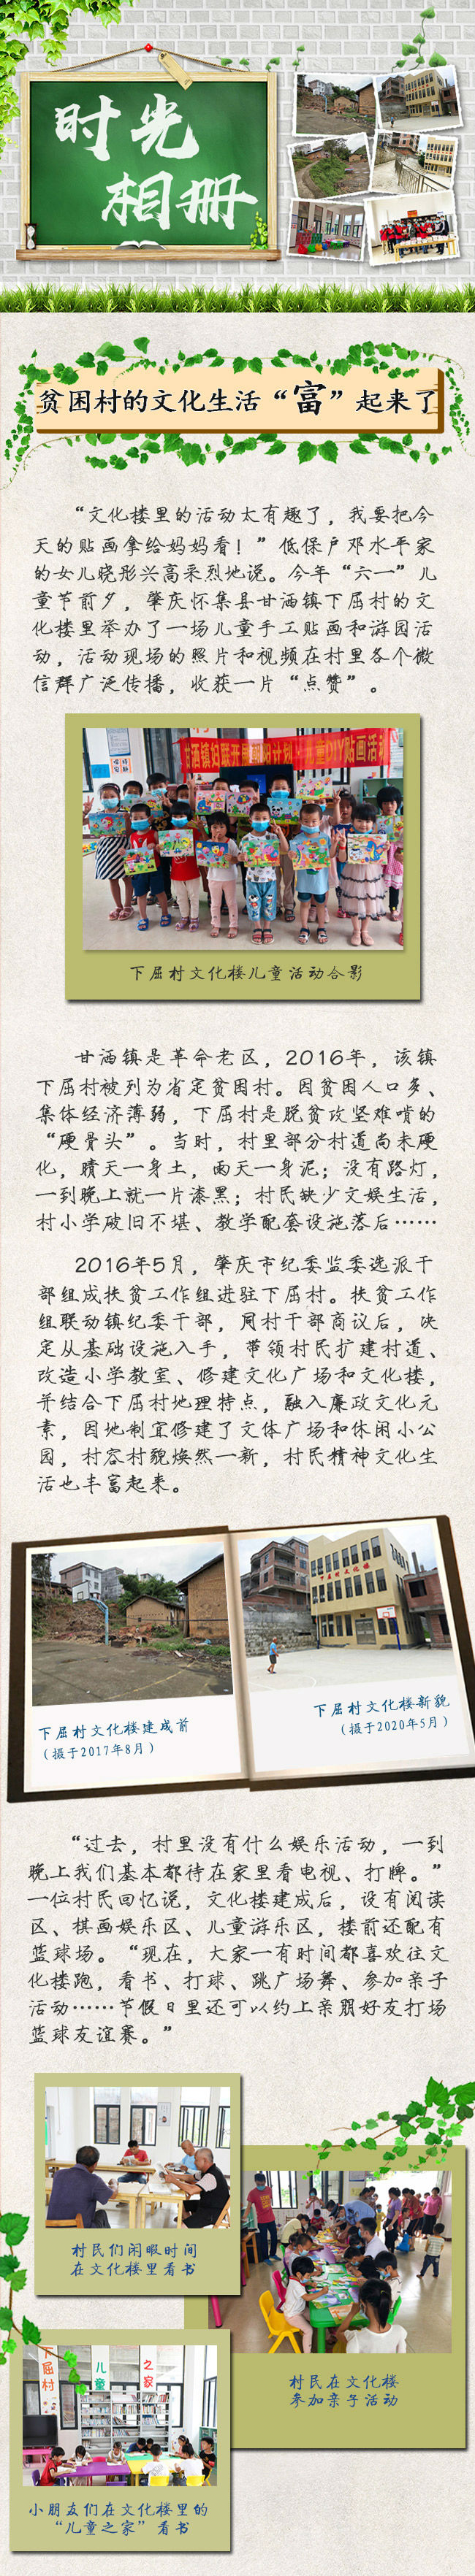 时光
相册
贫困村的文化生活“富”起来了
“文化楼里的活动太有趣了，我要把今
天的贴画拿给妈妈看！”低保户邓水平家
的女儿晓彤兴高采烈地说。今年“六一”儿
童节前夕，肇庆怀集县甘洒镇下屈村的文
化楼里举办了一场儿童手工贴画和游园活
动，活动现场的照片和视频在村里各个微
信群广泛传播，收获一片“点赞”。
甘洒镇妇联开展
计划
儿童DIY贴画活动
下屈村文化楼儿童活动合影
甘洒镇是革命老区，2016年，该镇
下屈村被列为省定贫困村。因贫困人口多、
集体经济薄弱，下屈村是脱贫攻坚难啃的
“硬骨头”。当时，村里部分村道尚未硬
化，晴天一身土，雨天一身泥；没有路灯，
一到晚上就一片漆黑；村民缺少文娱生活，
村小学破旧不堪、教学配套设施落后……
2016年5月，肇庆市纪委监委选派干
部组成扶贫工作组进驻下屈村。扶贫工作
组联动镇纪委干部，同村干部商议后，决
定从基础设施入手，带领村民扩建村道、
改造小学教室、修建文化广场和文化楼，
并结合下屈村地理特点，融入廉政文化元
素，因地制宜修建了文体广场和休闲小公
园，村容村貌焕然一新，村民精神文化生
活也丰富起来。
下屈村文化楼
下屈村文化楼建成前
（摄于2017年8月）
下屈村文化楼新貌
（摄于2020年5月）
“过去，村里没有什么娱乐活动，一到
晚上我们基本都待在家里看电视、打牌。”
一位村民回忆说，文化楼建成后，设有阅读
区、棋画娱乐区、儿童游乐区，楼前还配有
篮球场。“现在，大家一有时间都喜欢往文
化楼跑，看书、打球、跳广场舞、参加亲子
活动……节假日里还可以约上亲朋好友打场
篮球友谊赛。”
村民们闲暇时间
在文化楼里看书
村民在文化楼
参加亲子活动
下屈村
儿童
之家
小朋友们在文化楼里的
“儿童之家”看书